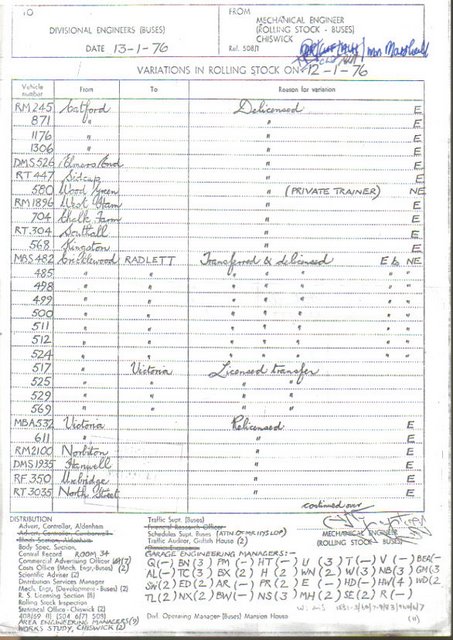 TO
FROM
DIVISIONAL ENGINEERS (BUSES)
MECHANICAL ENGINEER
(ROLLING STOCK - BUSES)
CHISWICK
DATE 13-1-76
Ref. 508/1
Mrs Marshall
VARIATIONS IN ROLLING STOCK ON 12-1-76
Vehicle number From To Reason for variation
RM 245 Catford Delicensed E
871 " " E
1176 " " E
1306 " " E
DMS 526 Elmers End " E
RT 447 Sidcup " E
580 Wood Green " (PRIVATE TRAINER) NE
RM 1896 West Ham " E
704 Chalk Farm " E
RT 304 Southall " E
568 Kingston " E
MBS 482 Cricklewood RADLETT Transferred & delicensed E to NE
485 " " " " " " "
498 " " " " " " "
499 " " " " " " "
500 " " " " " " "
511 " " " " " " "
512 " " " " " " "
524 " " " " " " "
517 " Victoria Licensed transfer
525 " " " "
529 " " " "
569 " " " "
MBA 532 Victoria Relicensed E
611 " " E
RM 2100 Norbiton " E
DMS 1935 Hanwell " E
RF 350 Uxbridge " E
RT 3035 North Street " E
continued over
MECHANICAL ENGINEER
(ROLLING STOCK - BUSES)
DISTRIBUTION
Advert. Controller, Aldenham
Advert. Controller, Camberwell
Body Spec. Section,
Control Record ROOM 34
Commercial Advertising Officer
Costs Office (Mech. Engr. Buses) (2)
Scientific Adviser (2)
Distribution Services Manager
Mech. Engr. (Development - Buses) (2)
R. S. Licensing Section (8)
Rolling Stock Inspection
Statistical Office - Chiswick (2)
AREA ENGINEERING MANAGERS (9)
WORKS STUDY, CHISWICK (2)
Traffic Supt. (Buses)
Financial Research Officer
Schedules Supt. Buses
Traffic Auditor, Griffith House (2)
GARAGE ENGINEERING MANAGERS:-
Q(-) BN(3) PM(-) HT(-) U(3) T(-) V(-) BEA(-)
AL(-) TC(3) BX(2) H(2) WN(2) W(3) NB(3) GM(3
SW(2) ED(2) AR(-) PR(2) E(-) HD(-) HW(4) WD(2
TL(2) NX(2) BW(-) NS(3) MH(2) SE(2) R(-)
Divl. Operating Manager (Buses) Mansion House
(11)